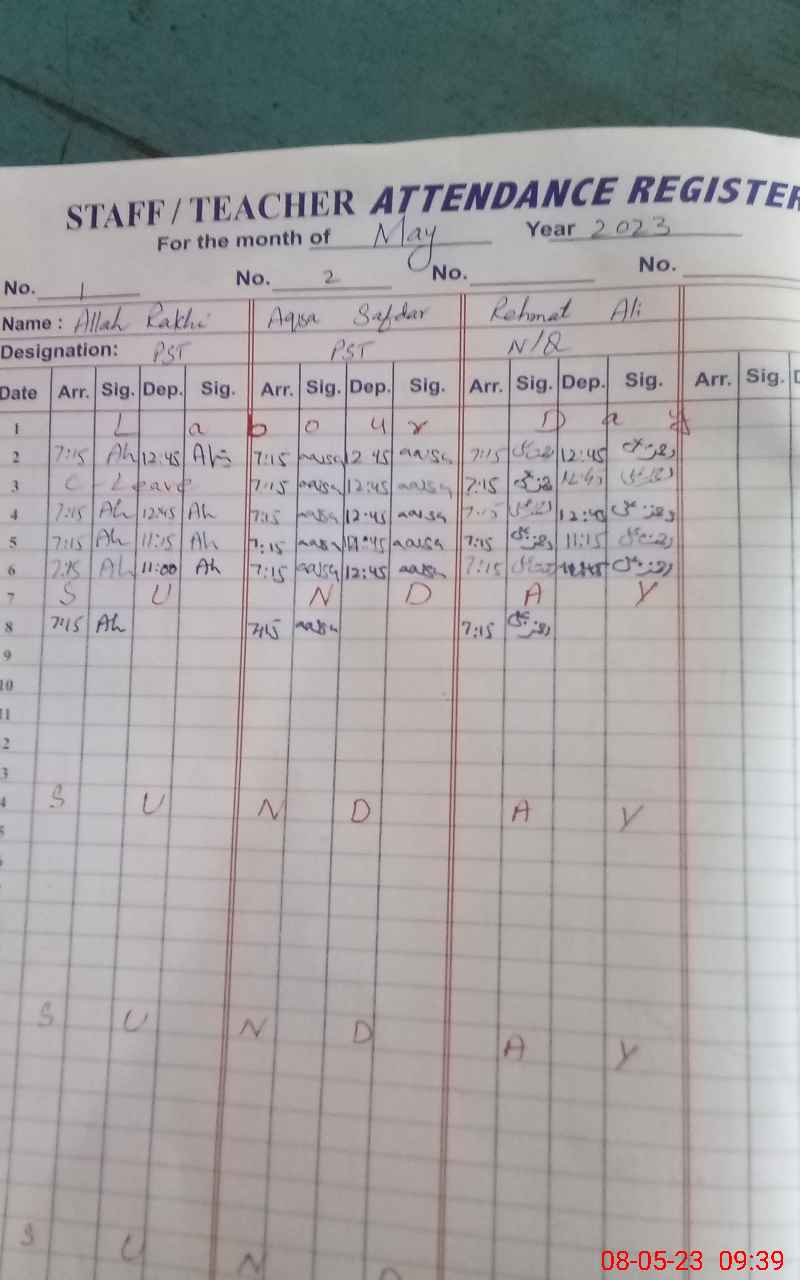 STAFF / TEACHER ATTENDANCE REGISTER
For the month of May Year 2023
No. 1 No. 2 No. No.
Name : Allah Rakhi Aqsa Safdar Rehmat Ali
Designation: PST PST N/Q
Date Arr. Sig. Dep. Sig. Arr. Sig. Dep. Sig. Arr. Sig. Dep. Sig. Arr. Sig. D
1 L a b o u r D a y
2 7:15 Ah 12:45 Ah 7:15 aqsa 12 45 aqsa 7:15 12:45
3 C - Leave 7:15 aqsa 12:45 aqsa 7:15
4 7:15 Ah 12:45 Ah 7:15 aqsa 12:45 aqsa 7:15
5 7:15 Ah 11:15 Ah 7:15 aqsa aqsa 7:15 11:15
6 7:15 Ah 11:00 Ah 7:15 aqsa 12:45 aqsa 7:15
7 S U N D A Y
8 7:15 Ah 7:15 aqsa 7:15
9
10
11
2
3
4 S U N D A Y
5
S U N D A Y
S U N D
08-05-23 09:39